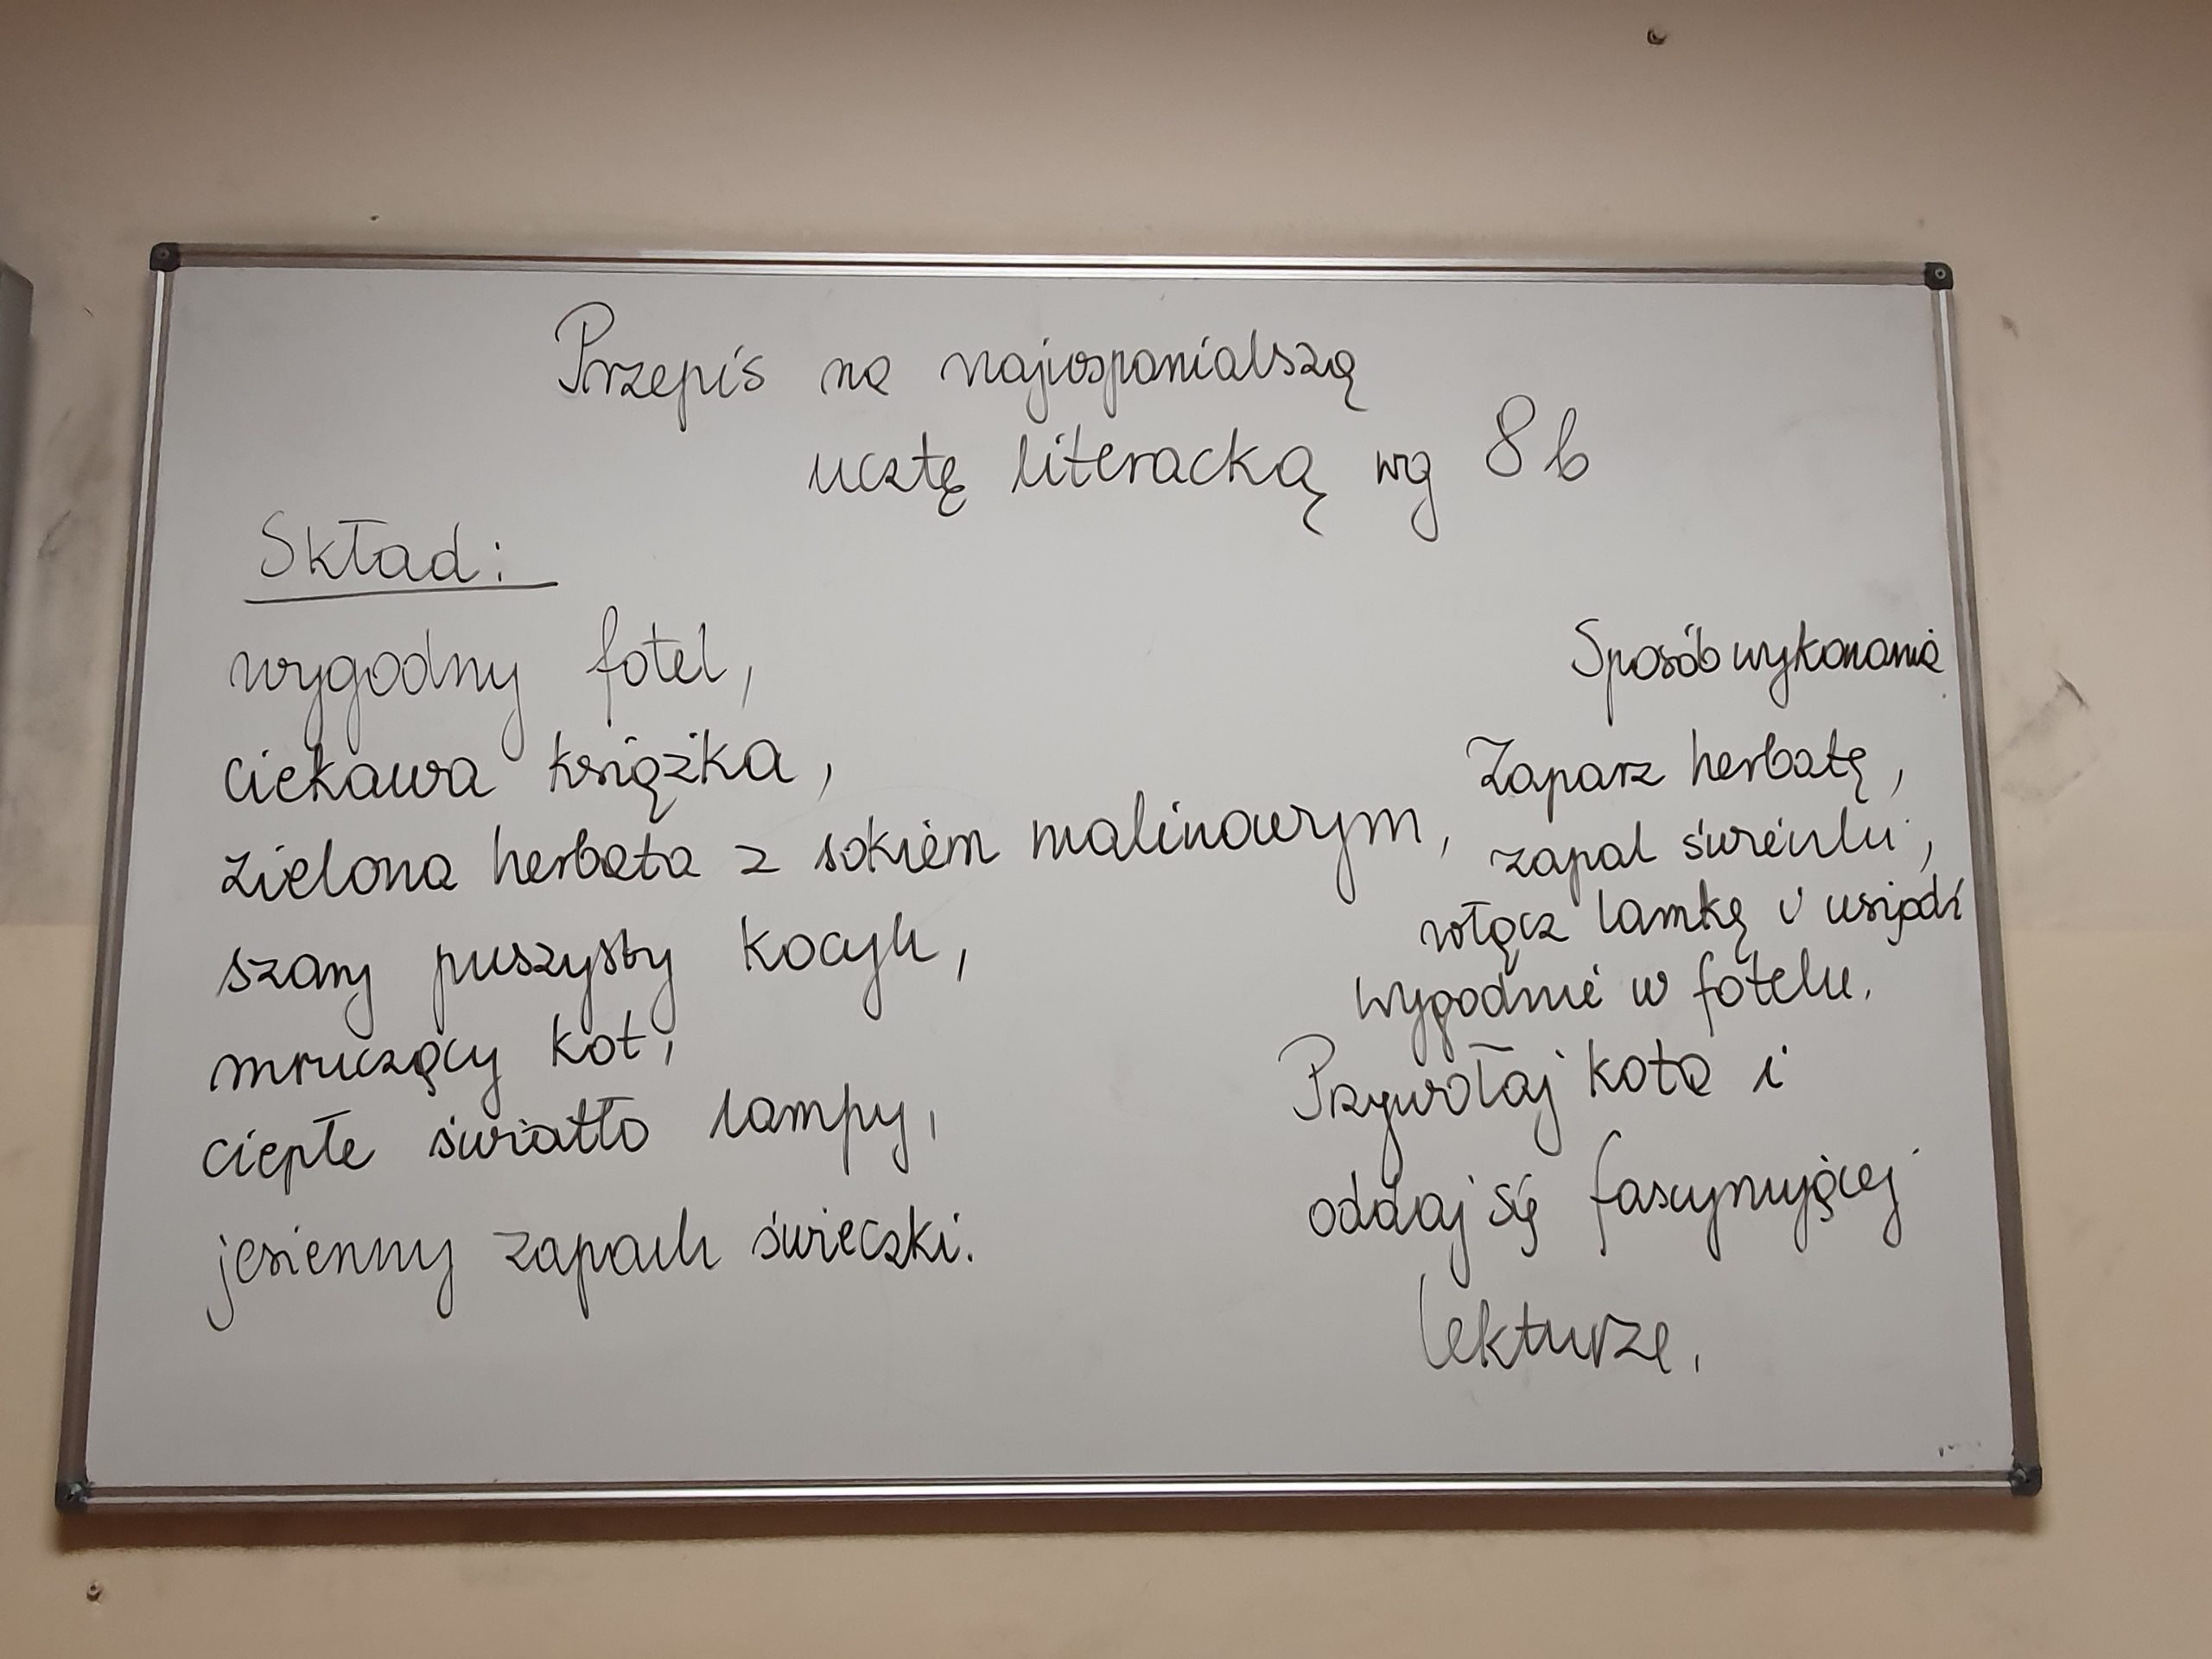 Przepis na najwspanialszą
ucztę literacką wg 8b
Skład:
wygodny fotel,
ciekawa książka,
zielona herbata z sokiem malinowym,
szary puszysty kocyk,
mruczący kot,
ciepłe światło lampy,
jesienny zapach świeczki.
Sposób wykonania
Zaparz herbatę,
zapal
włącz lamkę i usiądź
wygodnie w fotelu.
Przywołaj kota i
oddaj się fascynującej
lekturze.